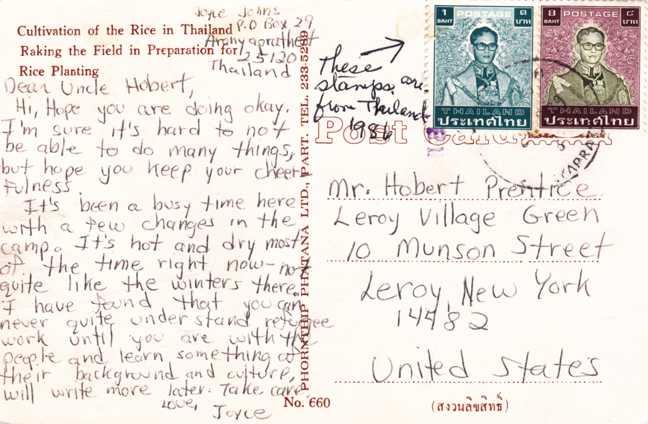 Joyce Johns
P.O Box 29
Aranyaprathet
25120
Thailand
Cultivation of the Rice in Thailand
Raking the Field in Preparation for
Rice Planting
Dear Uncle Hobert,
Hi, Hope you are doing okay.
I'm sure it's hard to not
be able to do many things,
but hope you keep your cheer
fulness.
It's been a busy time here
with a few changes in the
camp. It's hot and dry most
of the time right now - not
quite like the winters there.
I have found that you can
never quite understand refugee
work until you are with the
people and learn something of
their background and culture,
will write more later. Take care
Love,
Joyce
PHORNTHIP PHATANA LTD., PART. TEL. 233-5289
No. 660
These
stamps are
from Thailand
1986
1 BAHT POSTAGE ๑ บาท
THAILAND
ประเทศไทย
8 BAHT POSTAGE ๘ บาท
THAILAND
ประเทศไทย
Post Card
Mr. Hobert Prentice
Leroy Village Green
10 Munson Street
Leroy, New York
14482
United States
(สงวนลิขสิทธิ์)